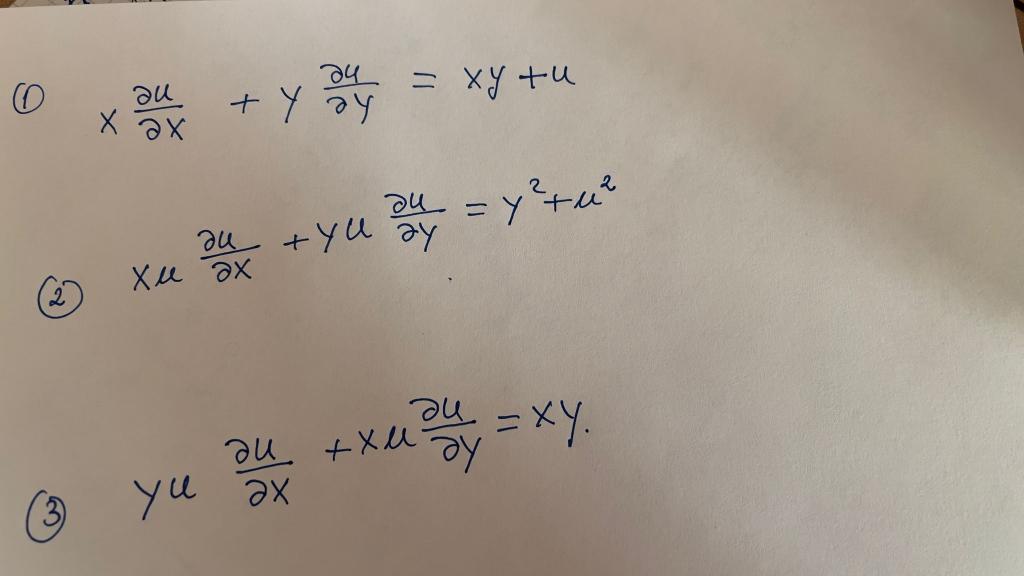 ① x ∂u/∂x + y ∂u/∂y = xy + u
② xu ∂u/∂x + yu ∂u/∂y = y² + u²
③ yu ∂u/∂x + xu ∂u/∂y = xy.